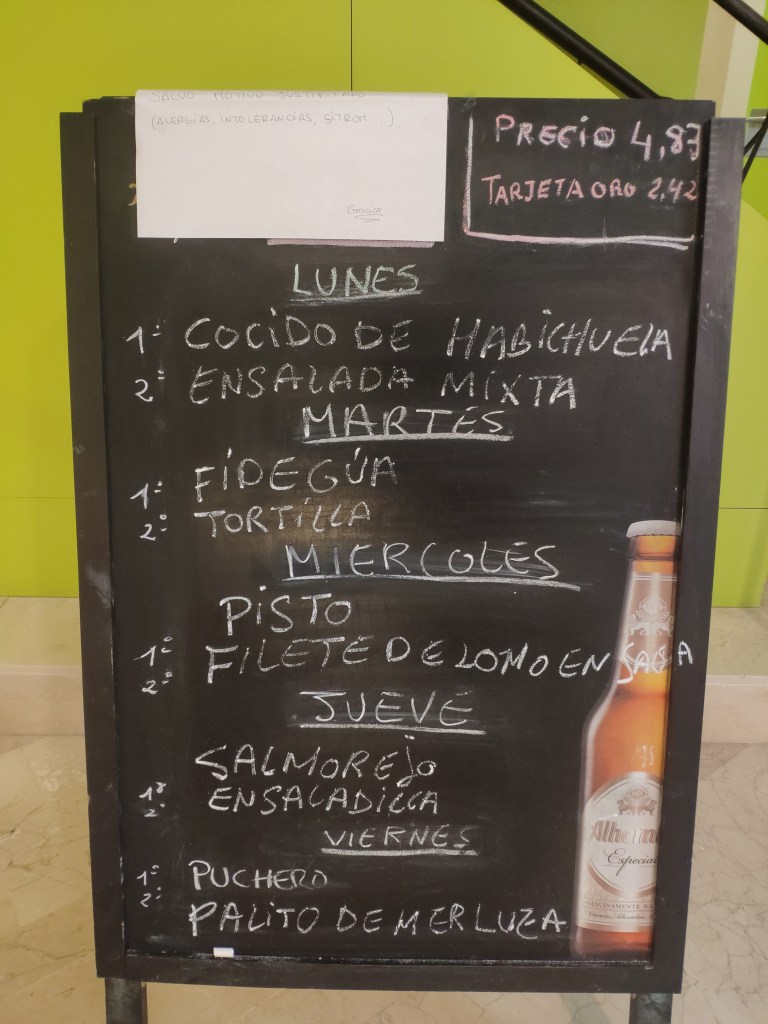 SALUD MOTIVO JUSTIFICADO
(ALERGIAS, INTOLERANCIAS, SITROM...)
GRACIAS
PRECIO 4,83
TARJETA ORO 2,42
LUNES
1º COCIDO DE HABICHUELA
2º ENSALADA MIXTA
MARTES
1º FIDEGÚA
2º TORTILLA
MIERCOLES
PISTO
1º FILETE DE LOMO EN SALSA
2º
JUEVE
SALMOREJO
1º ENSALADILLA
2º
VIERNES
1º PUCHERO
2º
PALITO DE MERLUZA
Alham
Especial